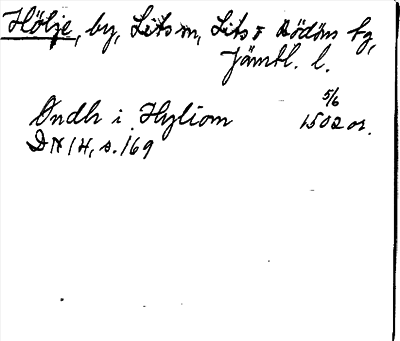 Hölje, by, Lits sn, Lits o Rödöns tg,
Jämtl. l.
Öndh i Hyliom 5/6 1502 or.
DN 14, s. 169